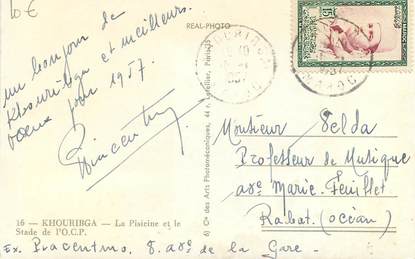 10€
REAL-PHOTO
un bonjour de
Khouribga et meilleurs
vœux pour 1957.
15F
Monsieur Selda
Professeur de Musique
Marie-Feuillet
Rabat (océan)
6) Cie des Arts Photomécaniques, 44 r. Letellier, Paris-15
16 — KHOURIBGA — La Piscine et le
Stade de l'O.C.P.
Ex. Piacentino, 8. de la Gare.